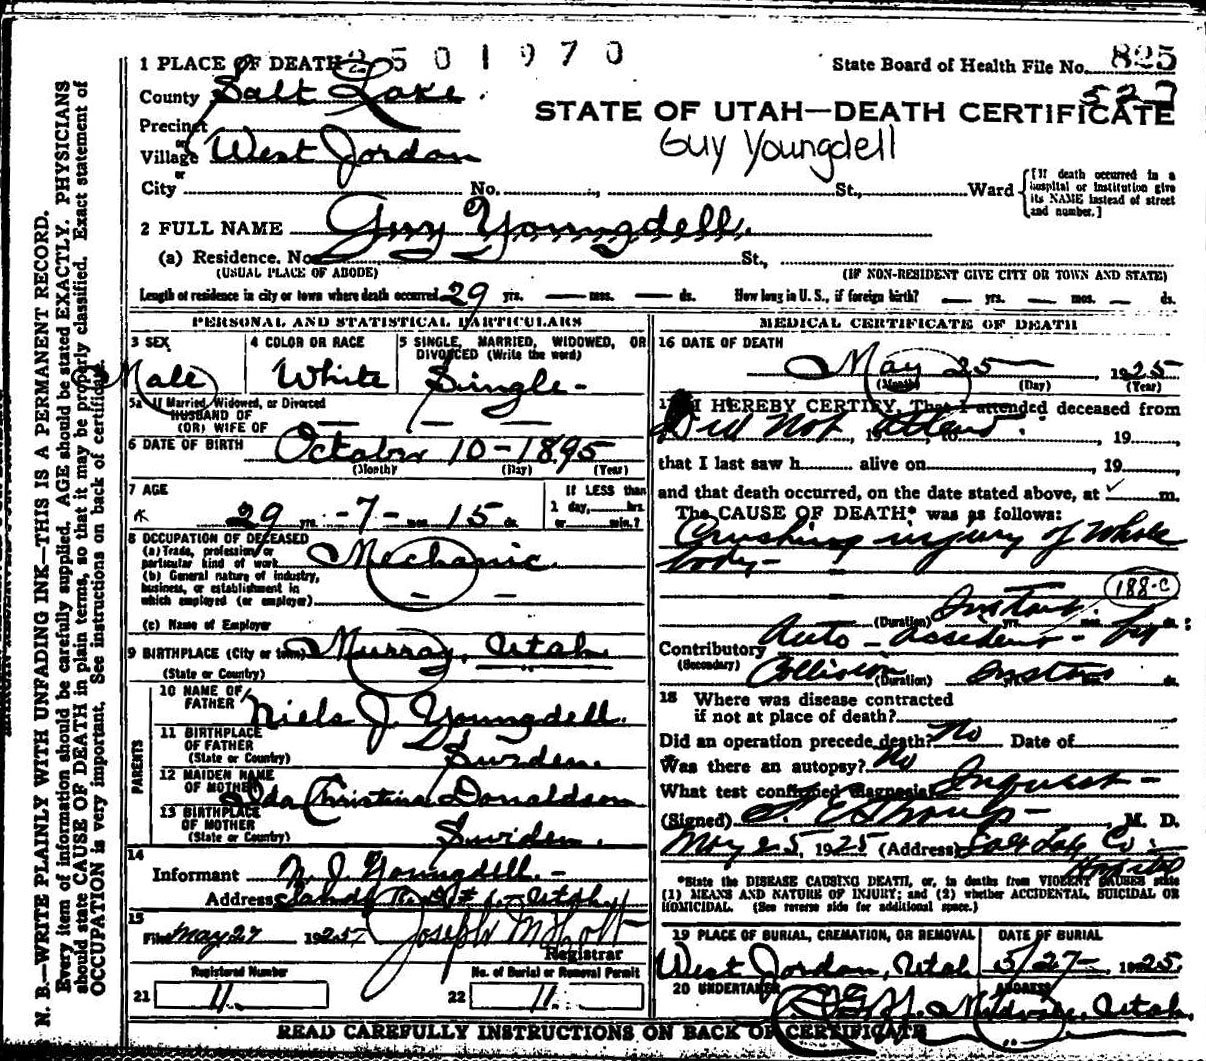 1 PLACE OF DEATH 2501970
State Board of Health File No. 825
County Salt Lake.
527
STATE OF UTAH—DEATH CERTIFICATE
Precinct
or
Village West Jordan
Guy Youngdell
or
City No. St., Ward
[If death occurred in a hospital or institution give its NAME instead of street and number.]
2 FULL NAME Guy Youngdell.
(a) Residence. No. St.,
(USUAL PLACE OF ABODE) (IF NON-RESIDENT GIVE CITY OR TOWN AND STATE)
Length of residence in city or town where death occurred 29 yrs. — mos. — ds. How long in U. S., if foreign birth? — yrs. — mos. — ds.
PERSONAL AND STATISTICAL PARTICULARS
3 SEX 4 COLOR OR RACE 5 SINGLE, MARRIED, WIDOWED, OR DIVORCED (Write the word)
Male White Single -
5a If Married, Widowed, or Divorced
HUSBAND OF
(OR) WIFE OF — —
6 DATE OF BIRTH October 10-1895
(Month) (Day) (Year)
7 AGE If LESS than
1 day, hrs.
29 yrs. -7- mos. 15 ds. or min.?
8 OCCUPATION OF DECEASED
(a) Trade, profession, or
particular kind of work Mechanic.
(b) General nature of industry,
business, or establishment in
which employed (or employer) — —
(c) Name of Employer
9 BIRTHPLACE (City or town) Murray, Utah
(State or Country)
PARENTS
10 NAME OF FATHER Niels J. Youngdell.
11 BIRTHPLACE OF FATHER
(State or Country) Sweden.
12 MAIDEN NAME OF MOTHER Ida Christina Donaldson
13 BIRTHPLACE OF MOTHER
(State or Country) Sweden.
14
Informant N. J. Youngdell. -
Address Sandy R. #1 - Utah
15
Filed May 27 1925 Joseph M Holt
Registrar
Registered Number No. of Burial or Removal Permit
21 11 22 11
MEDICAL CERTIFICATE OF DEATH
16 DATE OF DEATH
May 25 — 1925
(Month) (Day) (Year)
17 I HEREBY CERTIFY, That I attended deceased from
Did not attend. 19 to , 19
that I last saw h alive on , 19
and that death occurred, on the date stated above, at m.
The CAUSE OF DEATH* was as follows:
Crushing injury of whole
body -
188-c
(Duration) Instant. yrs. mos. ds.
Contributory Auto - accident - by
(Secondary) Collision (Duration) Instant yrs. ds.
18 Where was disease contracted
if not at place of death?
Did an operation precede death? No Date of
Was there an autopsy? No
What test confirmed diagnosis? Inquest -
(Signed) , M. D.
May 25, 1925 (Address) Salt Lake Co.
Hospital
*State the DISEASE CAUSING DEATH, or, in deaths from VIOLENT CAUSES state
(1) MEANS AND NATURE OF INJURY; and (2) whether ACCIDENTAL, SUICIDAL OR
HOMICIDAL. (See reverse side for additional space.)
19 PLACE OF BURIAL, CREMATION, OR REMOVAL DATE OF BURIAL
West Jordan, Utah 5/27- 1925.
20 UNDERTAKER ADDRESS
Midvale, Utah.
READ CAREFULLY INSTRUCTIONS ON BACK OF CERTIFICATE
N. B.—WRITE PLAINLY WITH UNFADING INK—THIS IS A PERMANENT RECORD.
Every item of information should be carefully supplied. AGE should be stated EXACTLY. PHYSICIANS
should state CAUSE OF DEATH in plain terms, so that it may be properly classified. Exact statement of
OCCUPATION is very important. See instructions on back of certificate.